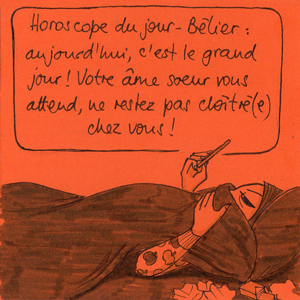 Horoscope du jour - Bélier :
aujourd'hui, c'est le grand
jour ! Votre âme soeur vous
attend, ne restez pas cloîtré(e)
chez vous !